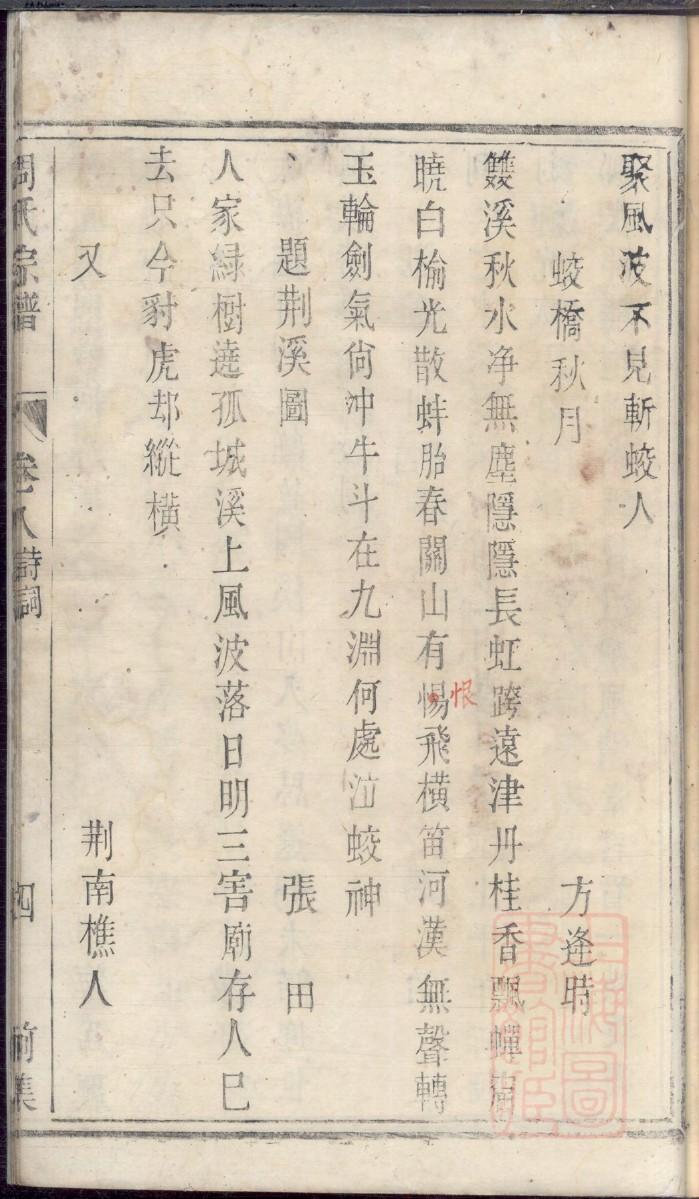 聚風波不見斬蛟人
蛟橋秋月 方逢時
雙溪秋水净無塵隱隱長虹跨遠津丹桂香飄蟬
曉白榆光散蚌胎春關山有惕飛横笛河漢無聲轉
恨
玉輪劍氣尙冲牛斗在九淵何處泣蛟神
題荆溪圖 張田
人家緑樹遶孤城溪上風波落日明三害廟存人巳
去只今豺虎却縱橫
又 荆南樵人
周氏宗譜 卷八 詩詞 四 前集